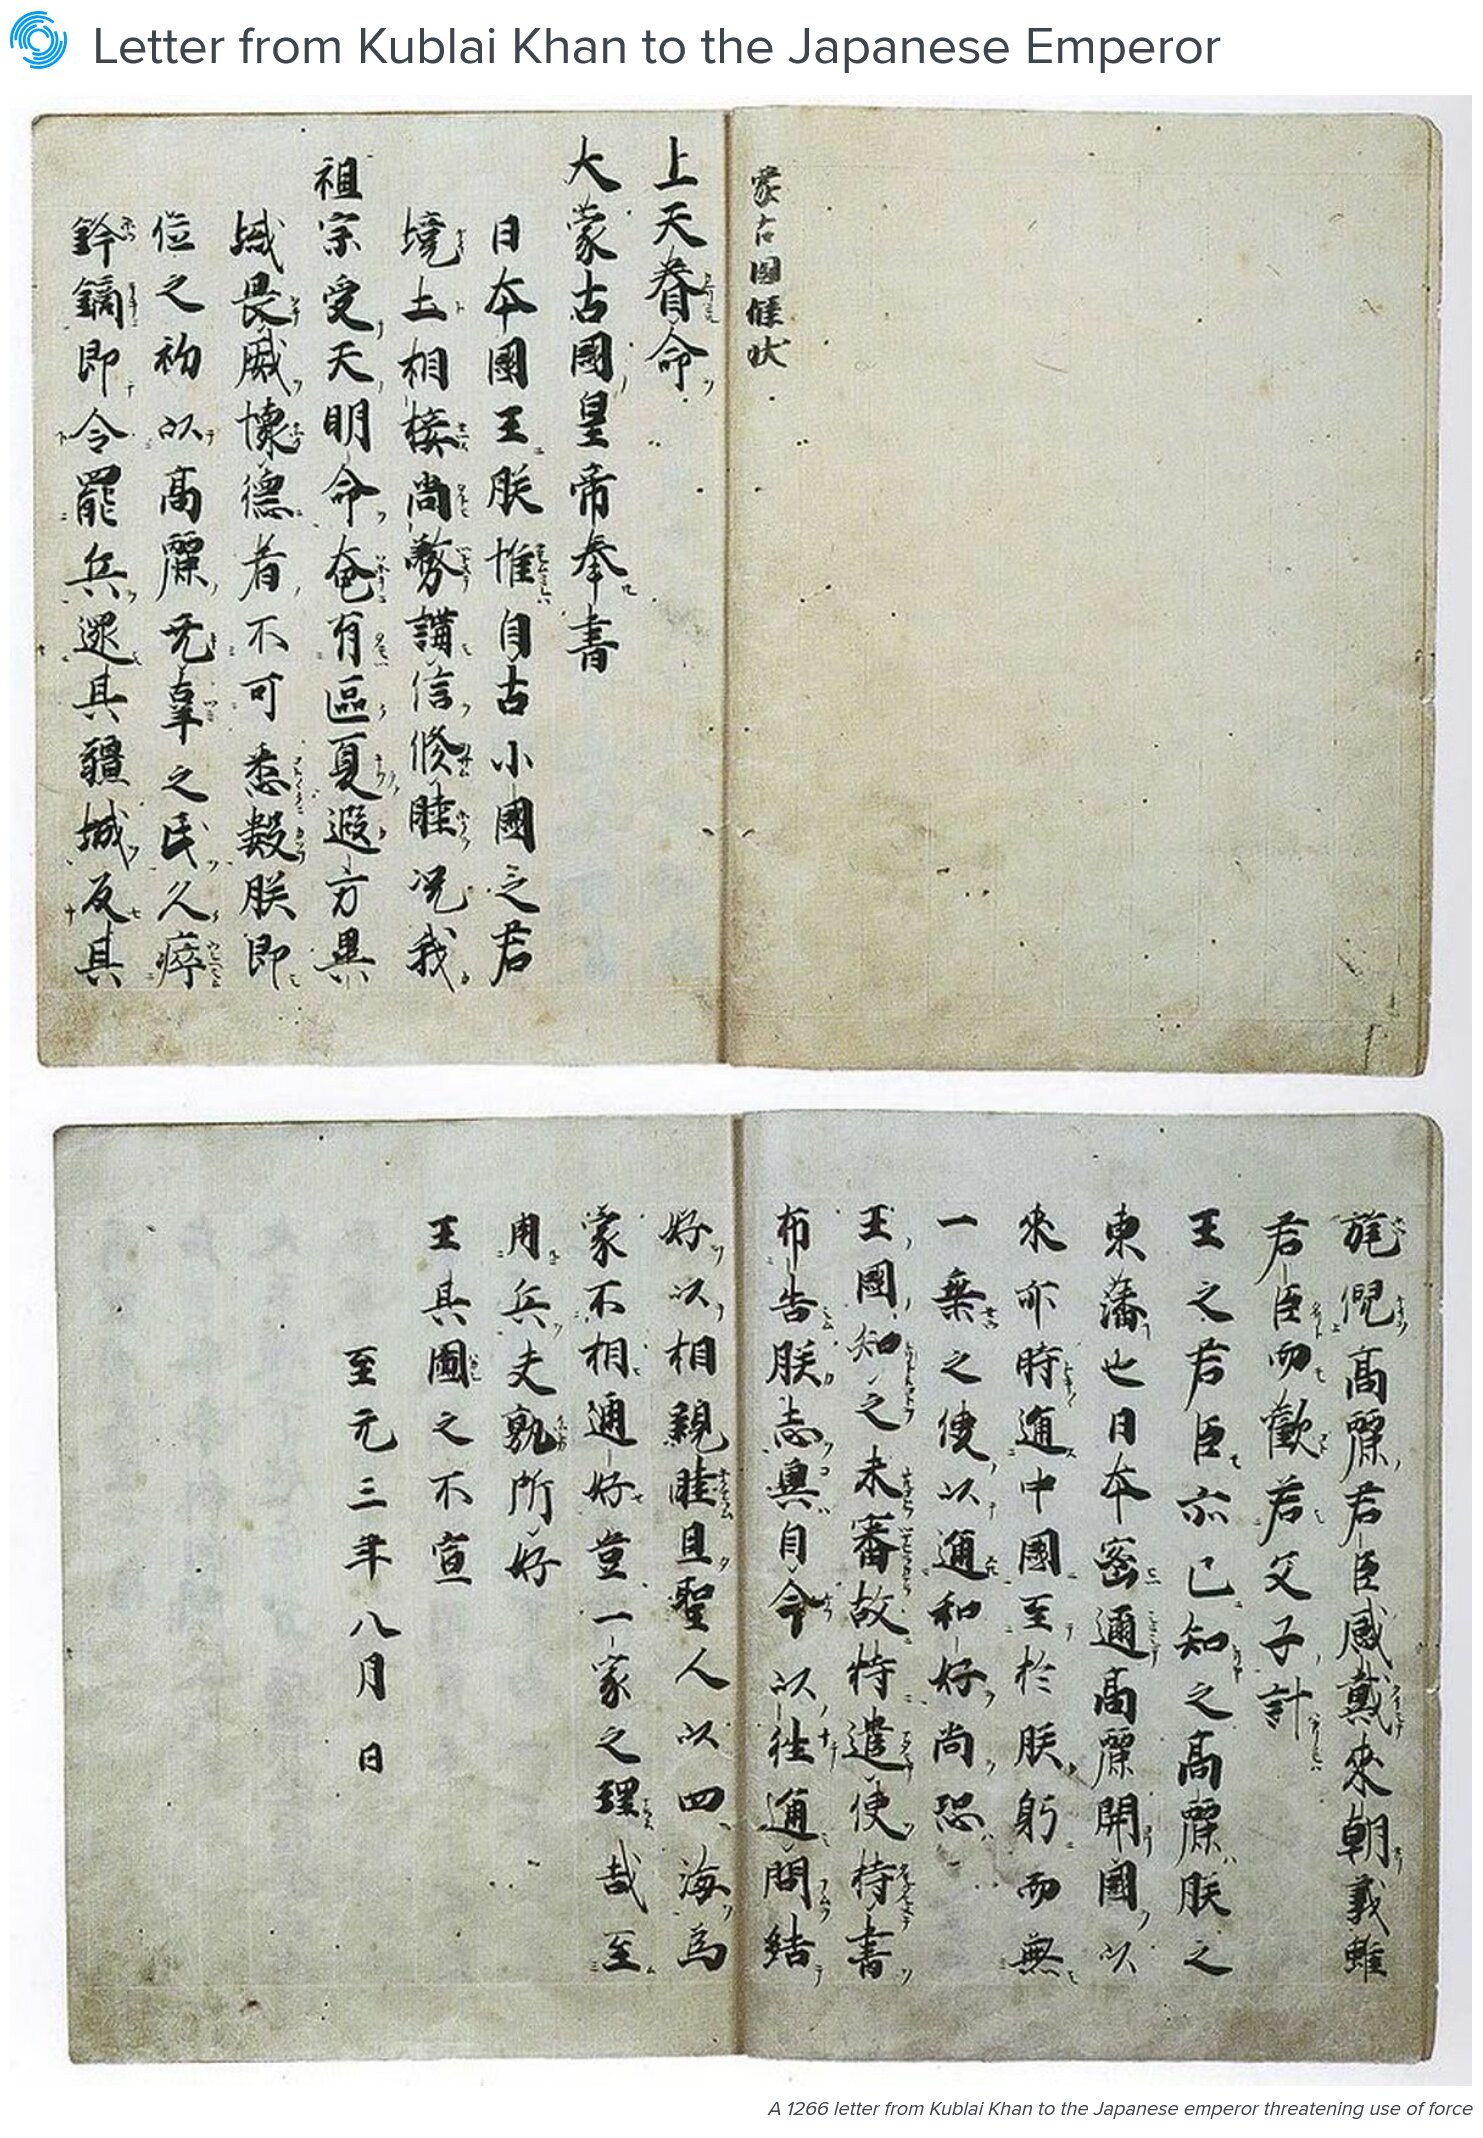 Letter from Kublai Khan to the Japanese Emperor
蒙古國牒状
上天眷命
大蒙古國皇帝奉書
日本國王朕惟自古小國之君
境土相接尚務講信修睦況我
祖宗受天明命奄有區夏遐方異
域畏威懐德者不可悉數朕即
位之初以高麗无辜之民久瘁
鋒鏑即令罷兵還其疆域反其
旄倪高麗君臣感戴來朝義雖
君臣而歡若父子計
王之君臣亦已知之高麗朕之
東藩也日本密邇高麗開國以
來亦時通中國至於朕躬而無
一乘之使以通和好尚恐
王國知之未審故特遣使持書
布告朕志冀自今以往通問結
好以相親睦且聖人以四海為
家不相通好豈一家之理哉至
用兵夫孰所好
王其圖之不宣
至元三年八月日
A 1266 letter from Kublai Khan to the Japanese emperor threatening use of force